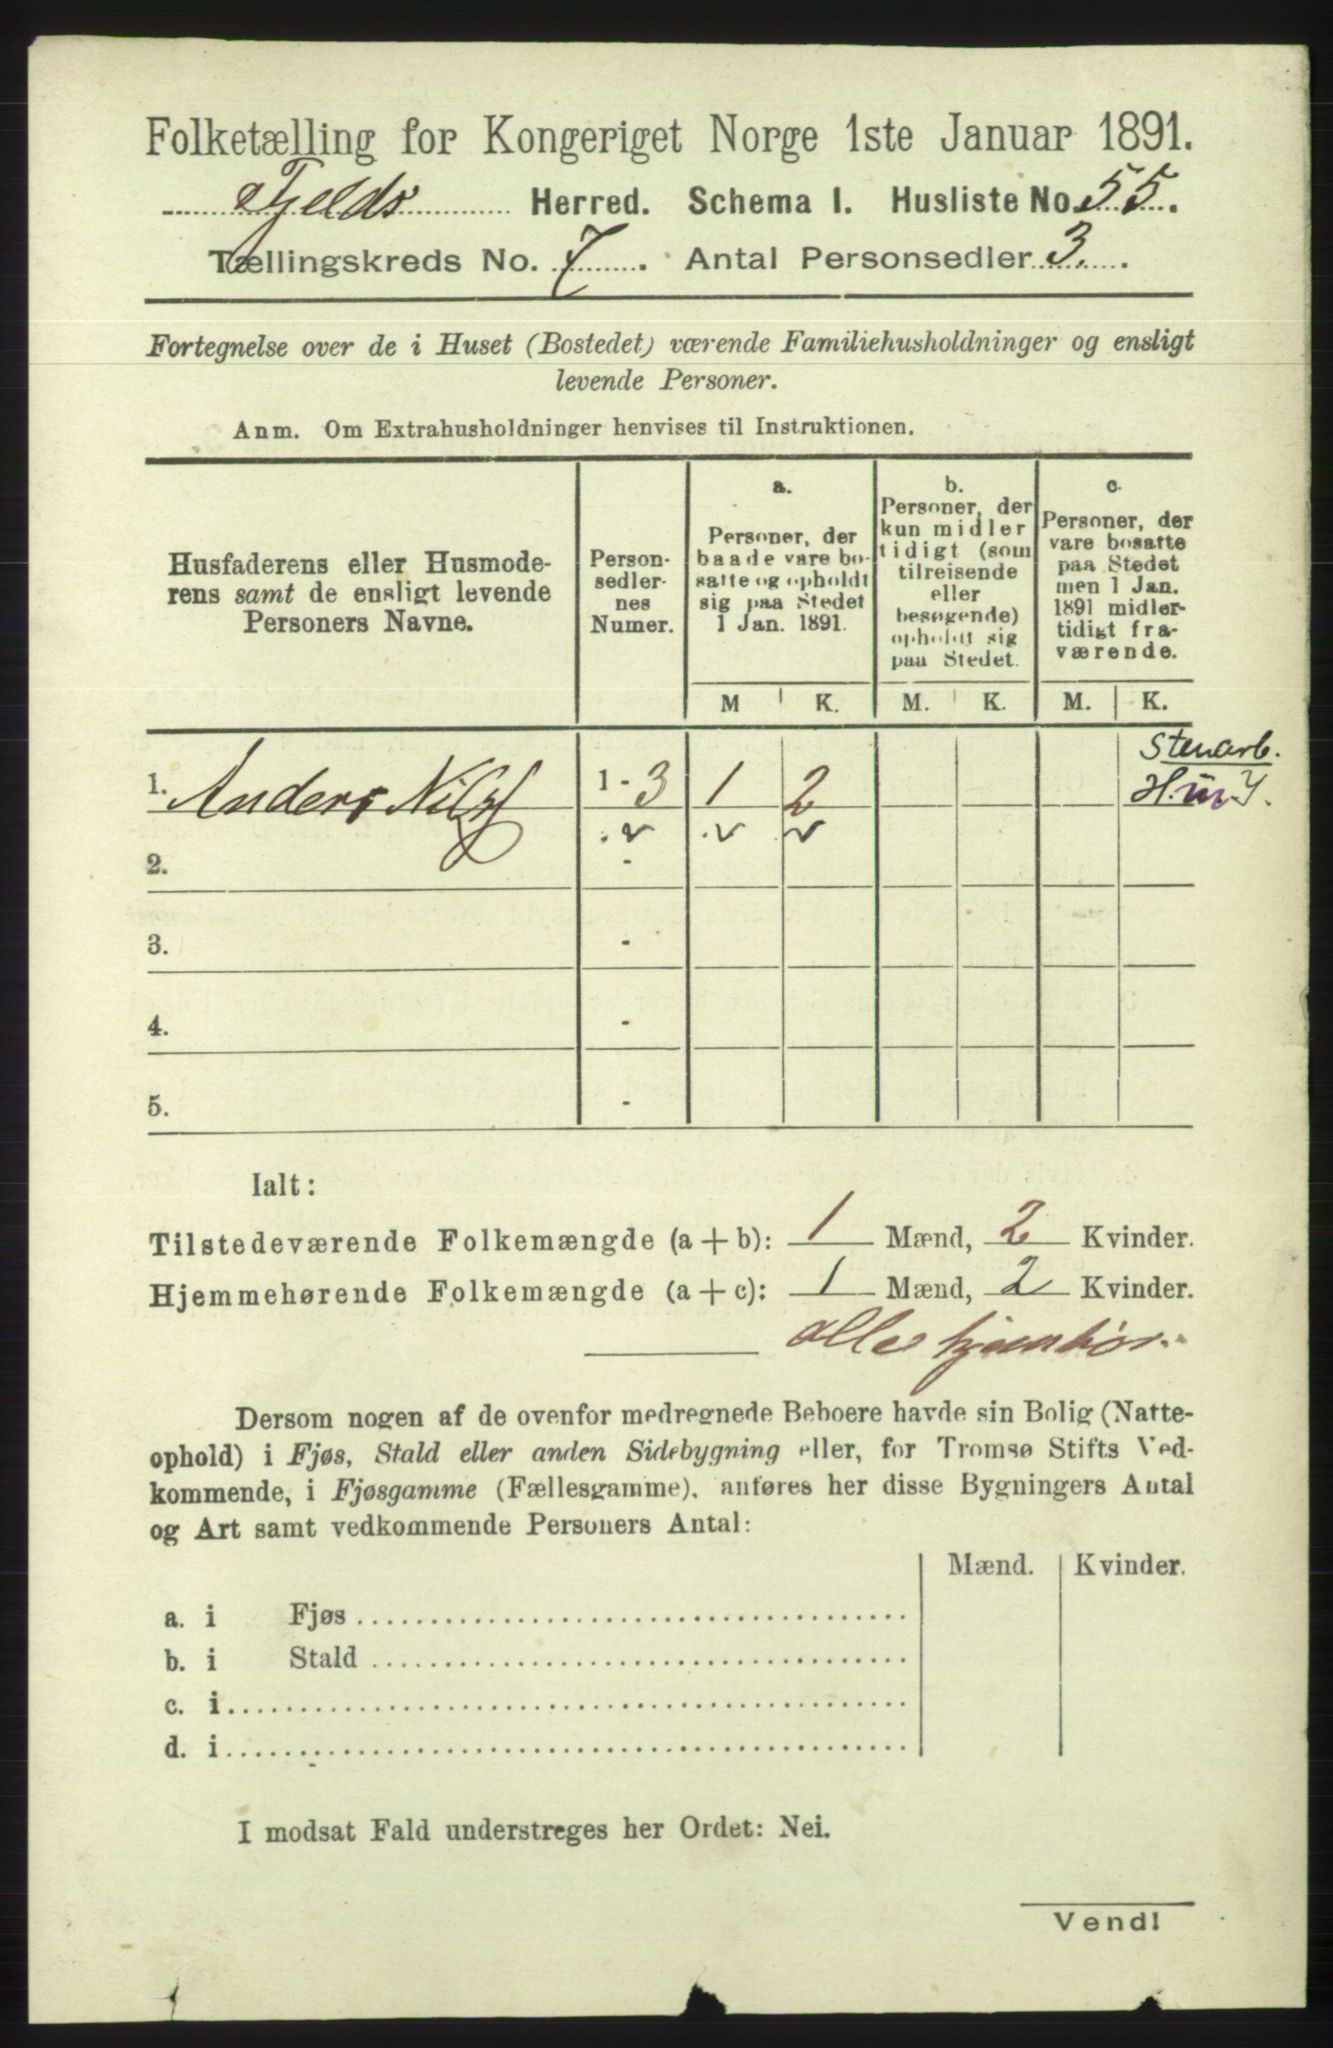 Folketælling for Kongeriget Norge 1ste Januar 1891.
Fjelds Herred. Schema I. Husliste No. 55.
Tællingskreds No. 7. Antal Personsedler 3.
Fortegnelse over de i Huset (Bostedet) værende Familiehusholdninger og ensligt
levende Personer.
Anm. Om Extrahusholdninger henvises til Instruktionen.
Husfaderens eller Husmode-
rens samt de ensligt levende
Personers Navne.
Person-
sedler-
nes
Numer.
a.
Personer, der
baade vare bo-
satte og opholdt
sig paa Stedet
1 Jan. 1891.
b.
Personer, der
kun midler
tidigt (som
tilreisende
eller
besøgende)
opholdt sig
paa Stedet.
c.
Personer, der
vare bosatte
paa Stedet
men 1 Jan.
1891 midler-
tidigt fra-
værende.
M K. M. K. M. K.
Stenarb.
1. Anders Nils 1 - 3 1 2
2. -
3. -
4. -
5. -
Ialt:
Tilstedeværende Folkemængde (a + b): 1 Mænd, 2 Kvinder.
Hjemmehørende Folkemængde (a + c): 1 Mænd, 2 Kvinder.
alle
Dersom nogen af de ovenfor medregnede Beboere havde sin Bolig (Natte-
ophold) i Fjøs, Stald eller anden Sidebygning eller, for Tromsø Stifts Ved-
kommende, i Fjøsgamme (Fællesgamme), anføres her disse Bygningers Antal
og Art samt vedkommende Personers Antal:
Mænd. Kvinder.
a. i Fjøs
b. i Stald
c. i
d. i
I modsat Fald understreges her Ordet: Nei.
Vend!